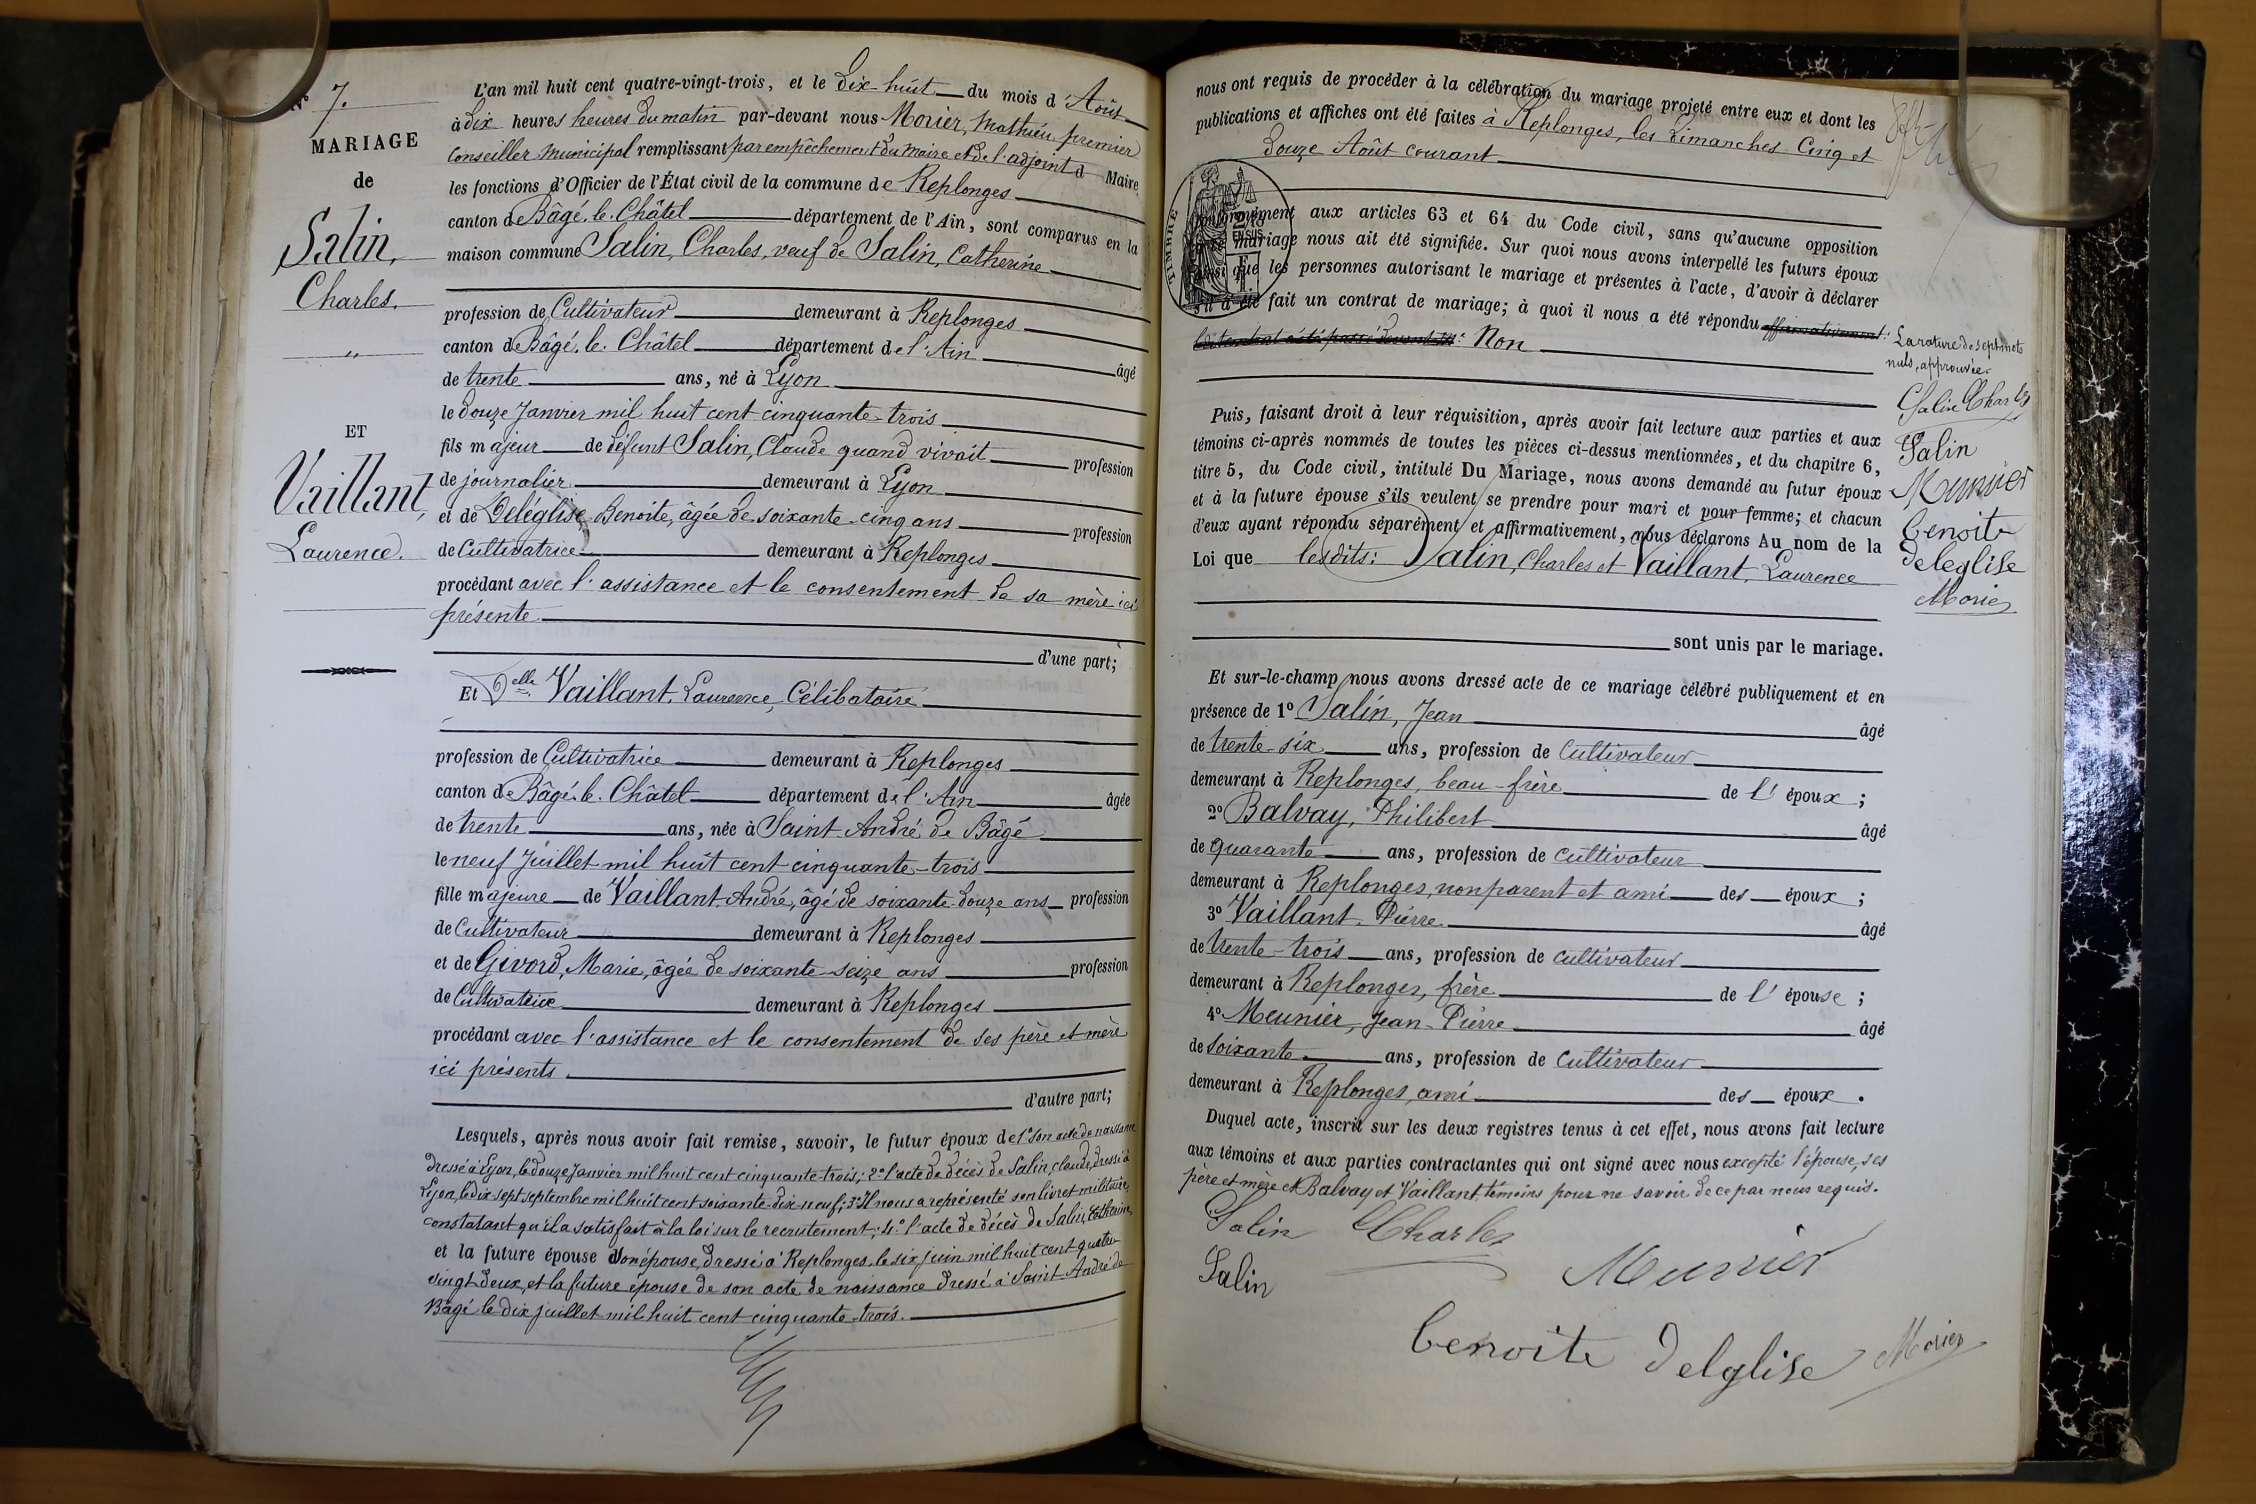 N° 7.
MARIAGE
de
Salin,
Charles.
"
ET
Vaillant,
Laurence.
L'an mil huit cent quatre-vingt-trois, et le dix-huit du mois d'Août
à dix heures heures du matin par-devant nous Morier, Mathieu premier
Conseiller Municipal remplissant par empêchement du Maire et de l'adjoint d Maire
les fonctions d'Officier de l'État civil de la commune de Replonges
canton de Bâgé-le-Châtel département de l'Ain, sont comparus en la
maison commune Salin, Charles, veuf de Salin, Catherine
profession de Cultivateur demeurant à Replonges
canton de Bâgé-le-Châtel département de l'Ain âgé
de trente ans, né à Lyon
le douze Janvier mil huit cent cinquante-trois
fils majeur de défunt Salin, Claude quand vivait profession
de journalier demeurant à Lyon
et de Deléglise Benoite, âgée de soixante-cinq ans profession
de Cultivatrice demeurant à Replonges
procédant avec l'assistance et le consentement de sa mère ici
présente
d'une part;
Et Delle Vaillant, Laurence, Célibataire
profession de Cultivatrice demeurant à Replonges
canton de Bâgé-le-Châtel département de l'Ain âgée
de trente ans, née à Saint-André de Bâgé
le neuf Juillet mil huit cent cinquante-trois
fille majeure de Vaillant, André, âgé de soixante-douze ans profession
de Cultivateur demeurant à Replonges
et de Givord, Marie, âgée de soixante-seize ans profession
de Cultivatrice demeurant à Replonges
procédant avec l'assistance et le consentement de ses père et mère
ici présents
d'autre part;
Lesquels, après nous avoir fait remise, savoir, le futur époux de 1° son acte de naissance
dressé à Lyon, le douze Janvier mil huit cent cinquante-trois; 2° l'acte de décès de Salin, Claude, dressé à
Lyon, le dix-sept septembre mil huit cent soixante-dix-neuf; 3° Il nous a représenté son livret militaire,
constatant qu'il a satisfait à la loi sur le recrutement; 4° l'acte de décès de Salin, Catherine,
et la future épouse d son épouse, dressé à Replonges le six juin mil huit cent quatre
vingt-deux, et la future épouse de son acte de naissance dressé à Saint-André de
Bâgé le dix juillet mil huit cent cinquante-trois.
nous ont requis de procéder à la célébration du mariage projeté entre eux et dont les
publications et affiches ont été faites à Replonges, les Dimanches Cinq et
douze Août courant
TIMBRE
EN SUS
conformément aux articles 63 et 64 du Code civil, sans qu'aucune opposition
mariage nous ait été signifiée. Sur quoi nous avons interpellé les futurs époux
ainsi que les personnes autorisant le mariage et présentes à l'acte, d'avoir à déclarer
s'il a été fait un contrat de mariage; à quoi il nous a été répondu affirmativement:
Non
La rature de sept mots
nuls, approuvée.
Salin Charles
Salin
Meunier
benoite
deleglise
Morier
Puis, faisant droit à leur réquisition, après avoir fait lecture aux parties et aux
témoins ci-après nommés de toutes les pièces ci-dessus mentionnées, et du chapitre 6,
titre 5, du Code civil, intitulé Du Mariage, nous avons demandé au futur époux
et à la future épouse s'ils veulent se prendre pour mari et pour femme; et chacun
d'eux ayant répondu séparément et affirmativement, nous déclarons Au nom de la
Loi que lesdits: Salin, Charles et Vaillant, Laurence
sont unis par le mariage.
Et sur-le-champ nous avons dressé acte de ce mariage célébré publiquement et en
présence de 1° Salin, Jean âgé
de trente-six ans, profession de cultivateur
demeurant à Replonges, beau-frère de l'époux;
2° Balvay, Philibert âgé
de quarante ans, profession de cultivateur
demeurant à Replonges, non parent et ami des époux;
3° Vaillant, Pierre âgé
de trente-trois ans, profession de cultivateur
demeurant à Replonges, frère de l'épouse;
4° Meunier, Jean-Pierre âgé
de soixante ans, profession de cultivateur
demeurant à Replonges, ami des époux.
Duquel acte, inscrit sur les deux registres tenus à cet effet, nous avons fait lecture
aux témoins et aux parties contractantes qui ont signé avec nous excepté l'épouse, ses
père et mère et Balvay et Vaillant, témoins pour ne savoir de ce par nous requis.
Salin Charles
Meunier
Salin
benoite delglise
Morier